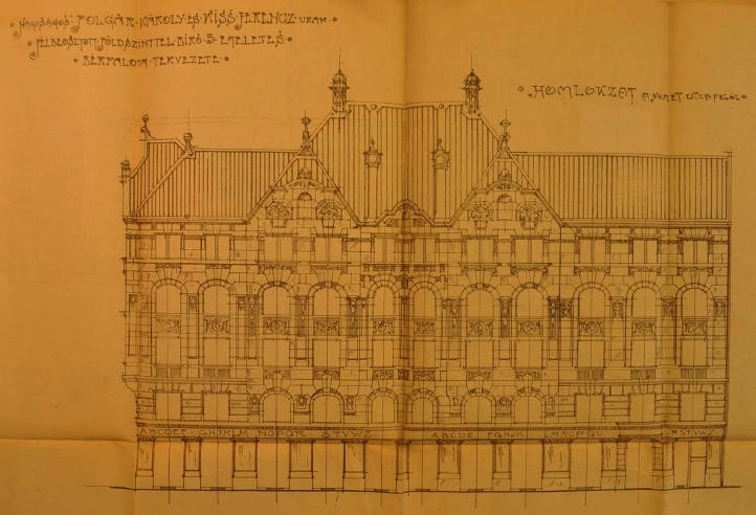 NAGYSÁGOS: POLGÁR KÁROLY ÉS KISS FERENCZ URAK
FÉLBEOSZTOTT FÖLDSZINTTEL BIRÓ 3 EMELETES
BÉRPALOTA TERVEZETE
HOMLOKZAT A NÉMET UTCA FELŐL
ABCDEF GHIKLM NOPQR STVWZ ABCDE FGHJK LMNOPQU RSTVWZ